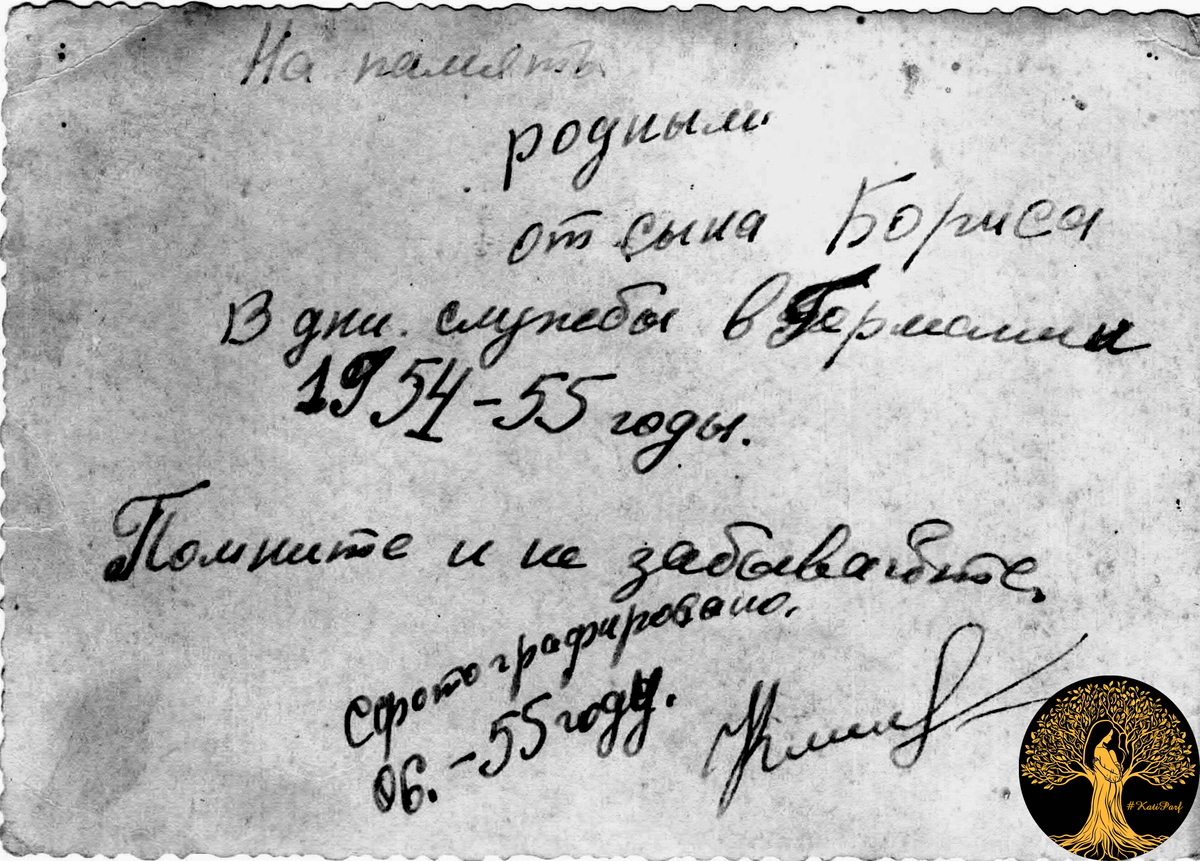 На память
родным
от сына Бориса
В дни службы в Германии
1954-55 годы.
Помните и не забывайте,
Сфотографировано.
06.-55 году.
#KatiParf